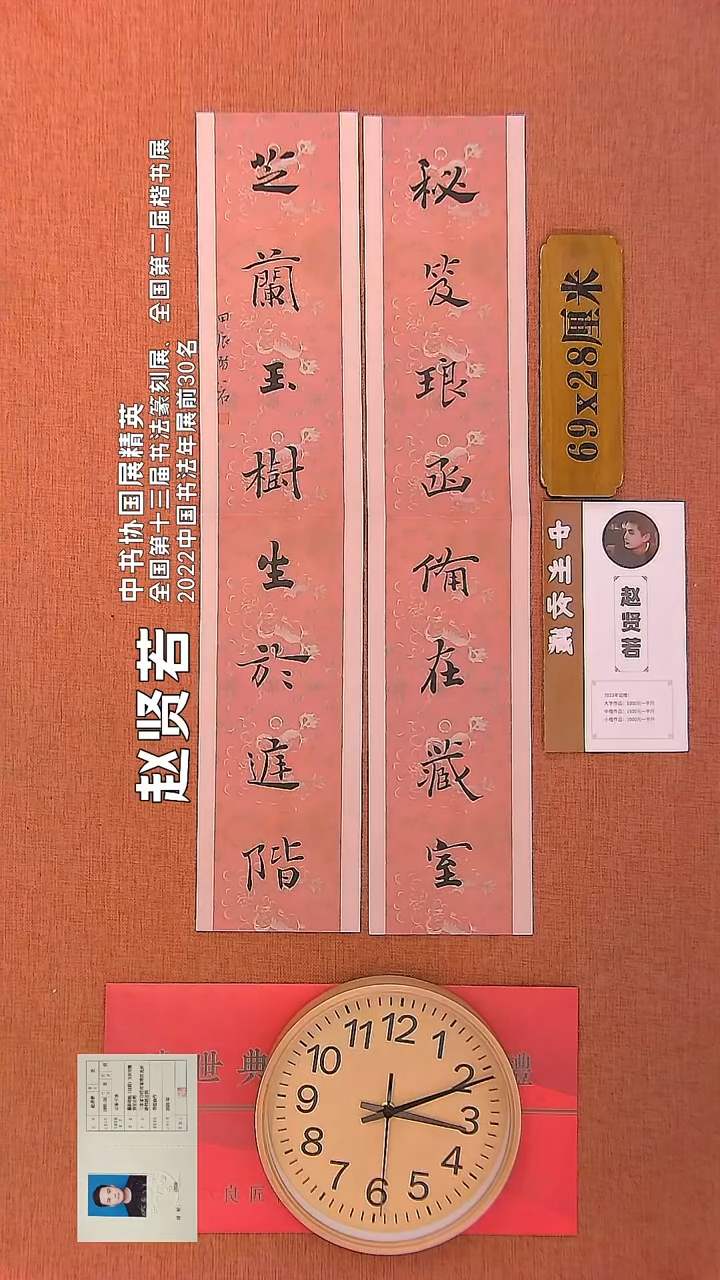 中书协国展精英
全国第十三届书法篆刻展、全国第二届楷书展
2022中国书法年展前30名
赵贤若
秘笈琅函備在藏室
芝蘭玉樹生於庭階
69x28厘米
赵贤若
世典
良匠
12
1
2
3
4
5
6
7
8
9
10
11